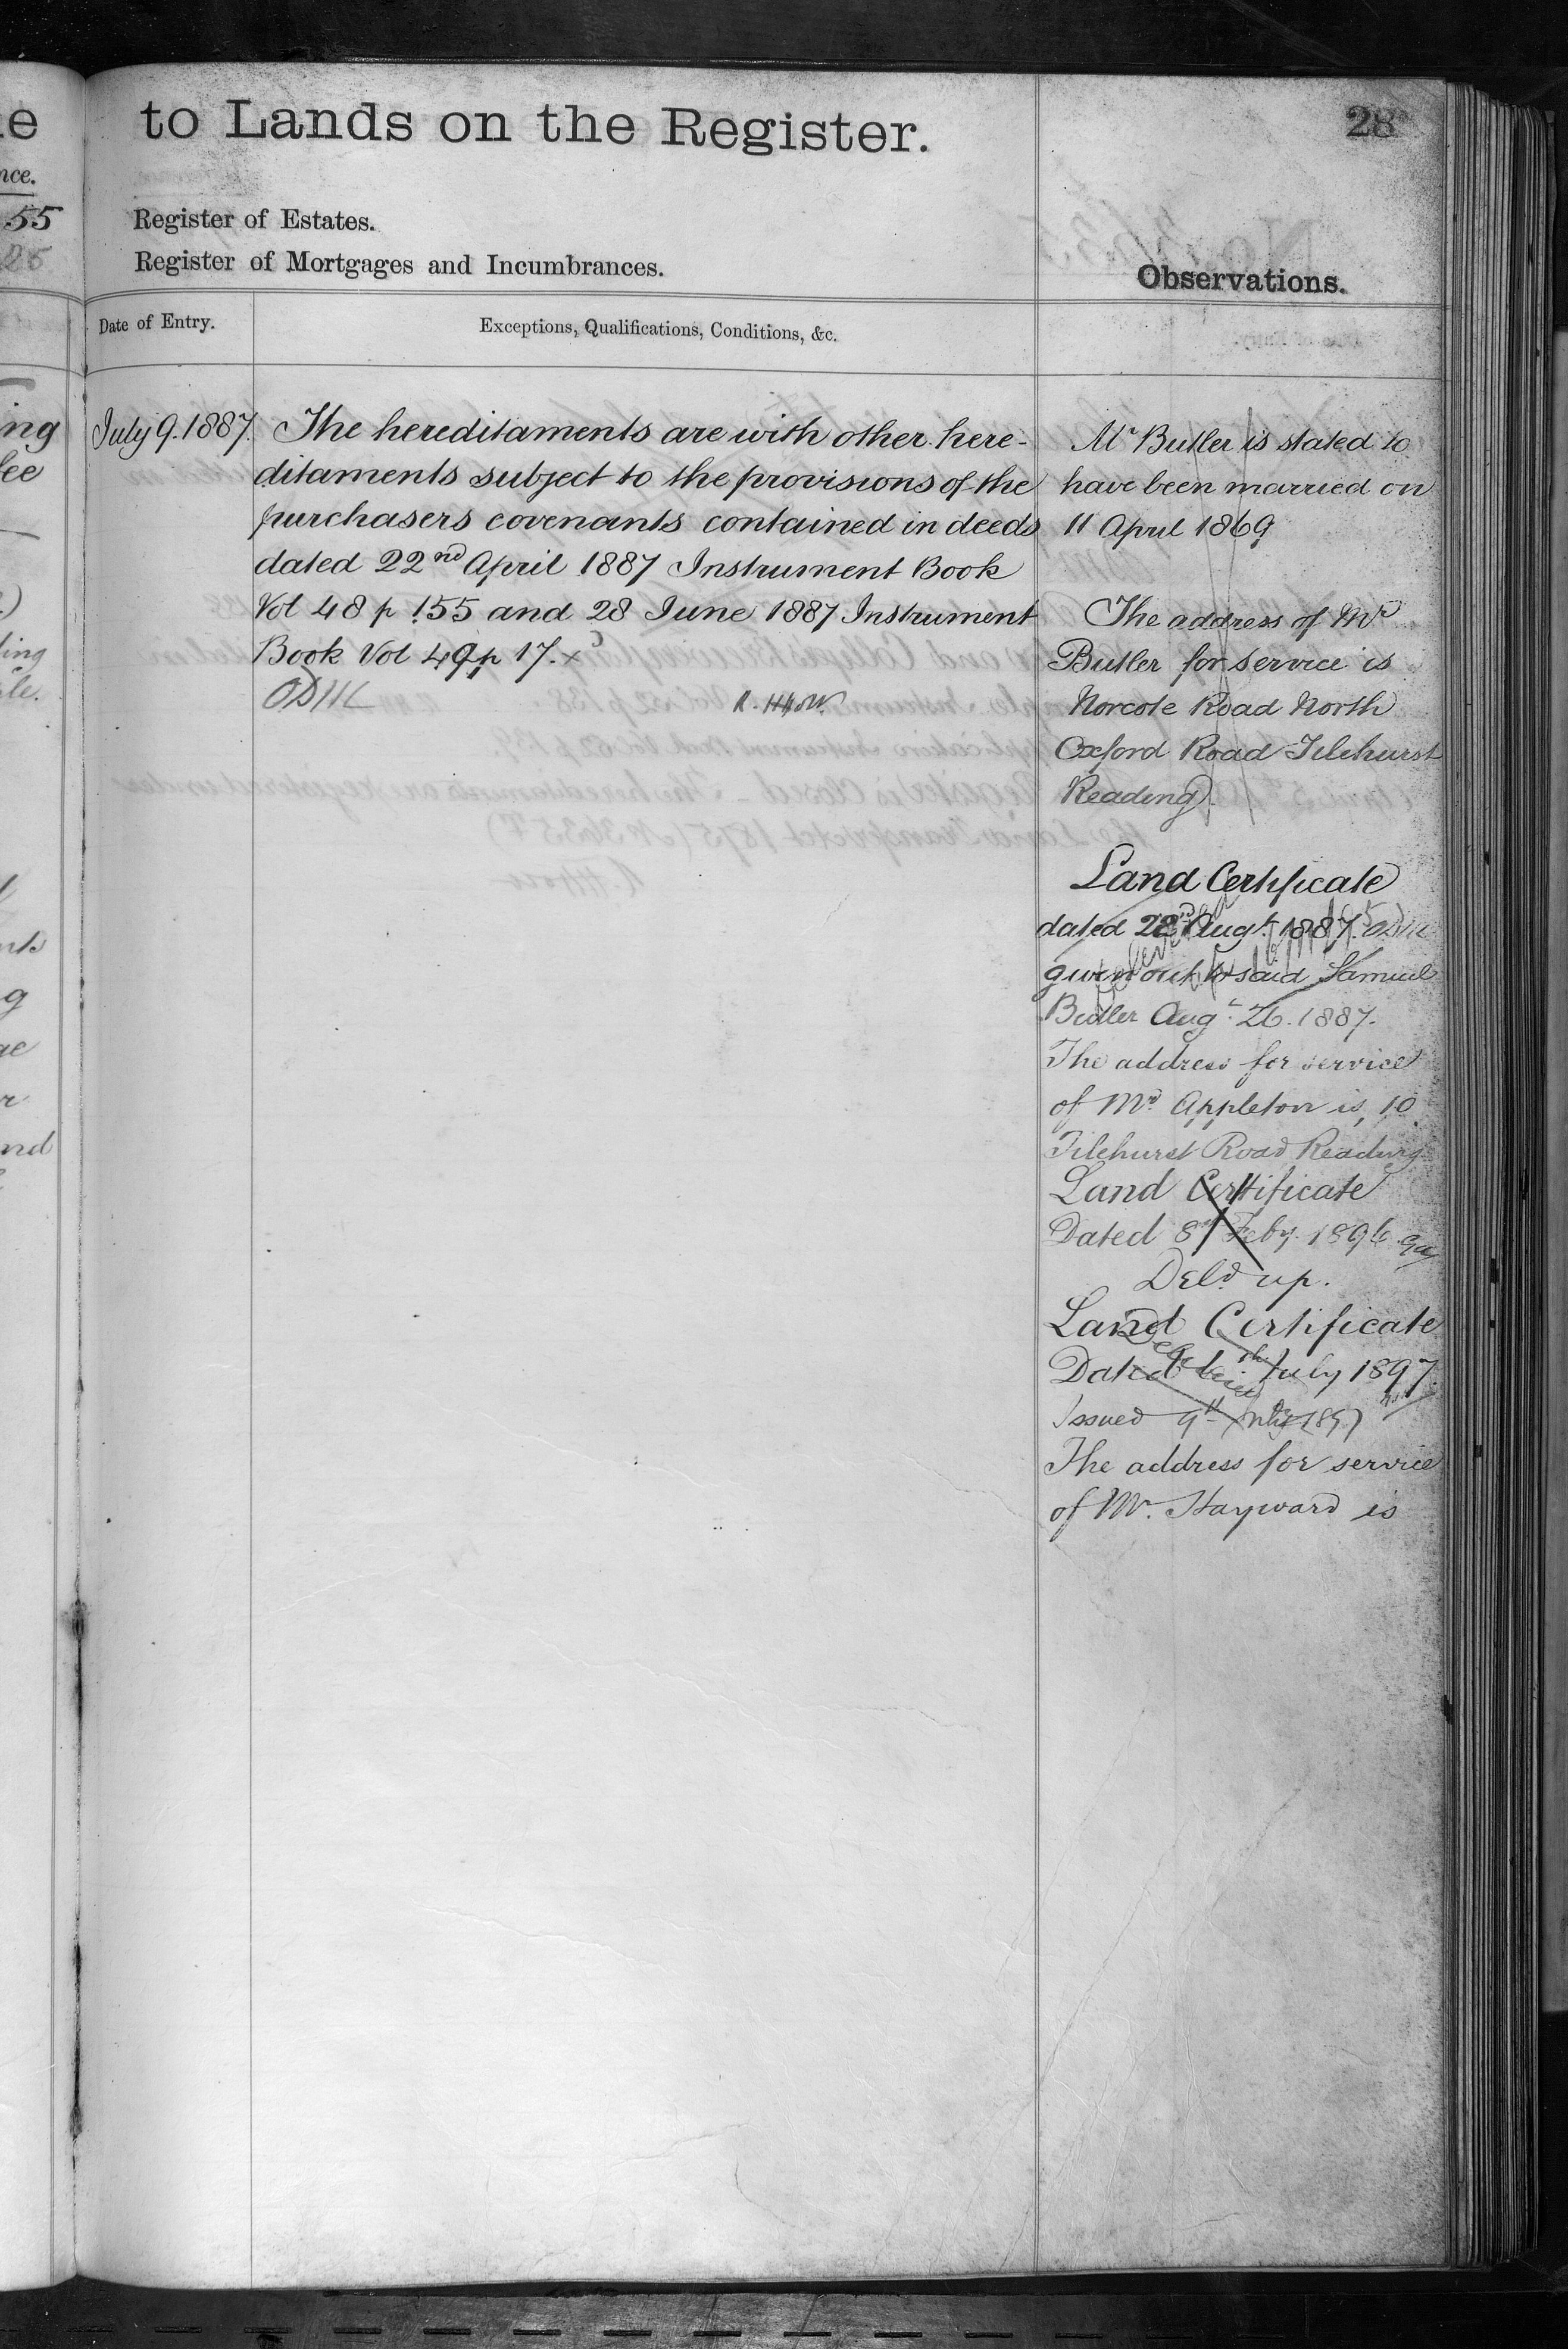 to Lands on the Register.
28
Register of Estates.
Register of Mortgages and Incumbrances.
Observations.
Date of Entry.
Exceptions, Qualifications, Conditions, &c.
July 9. 1887.
The hereditaments are with other here-
ditaments subject to the provisions of the
purchasers covenants contained in deeds
dated 22nd April 1887 Instrument Book
Vol 48 p 155 and 28 June 1887 Instrument
Book Vol 49 p 17. x
Mr Butler is stated to
have been married on
11 April 1869
The address of Mr
Butler for service is
Norcote Road North
Oxford Road Tilehurst
Reading.
Land Certificate
dated 22nd Augt. 1887.
given out to said Samuel
Butler Augt. 26. 1887.
The address for service
of Mr Appleton is, 10
Tilehurst Road Reading
Land Certificate
Dated 8th Feby. 1896
Deld up.
Land Certificate
Dated July 1897.
Issued 9th July 1897
The address for service
of Mr. Hayward is
55
ng
lee
ing
nts
g
nd